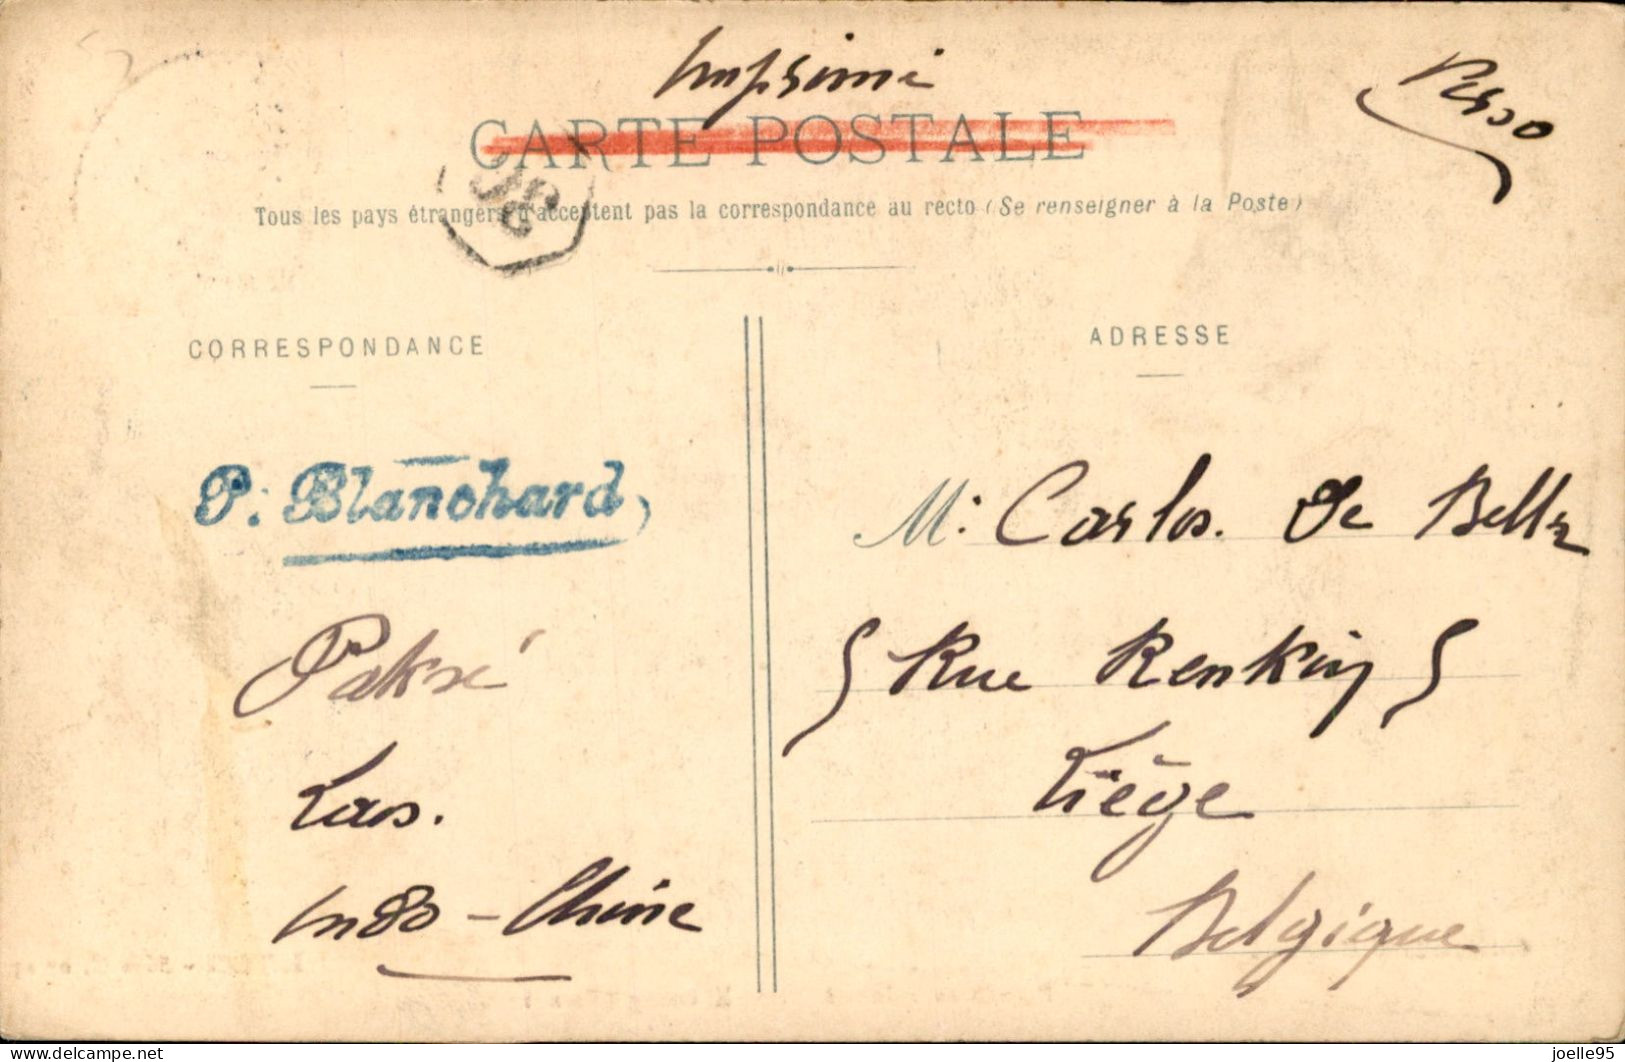 Imprimé
CARTE POSTALE
Tous les pays étrangers n'acceptent pas la correspondance au recto (Se renseigner à la Poste)
CORRESPONDANCE
P. Blanchard,
Paksé
Laos.
Indo-Chine
ADRESSE
M. Carlos. De
Rue Renkin
Liège
Belgique
delcampe.net
joelle95